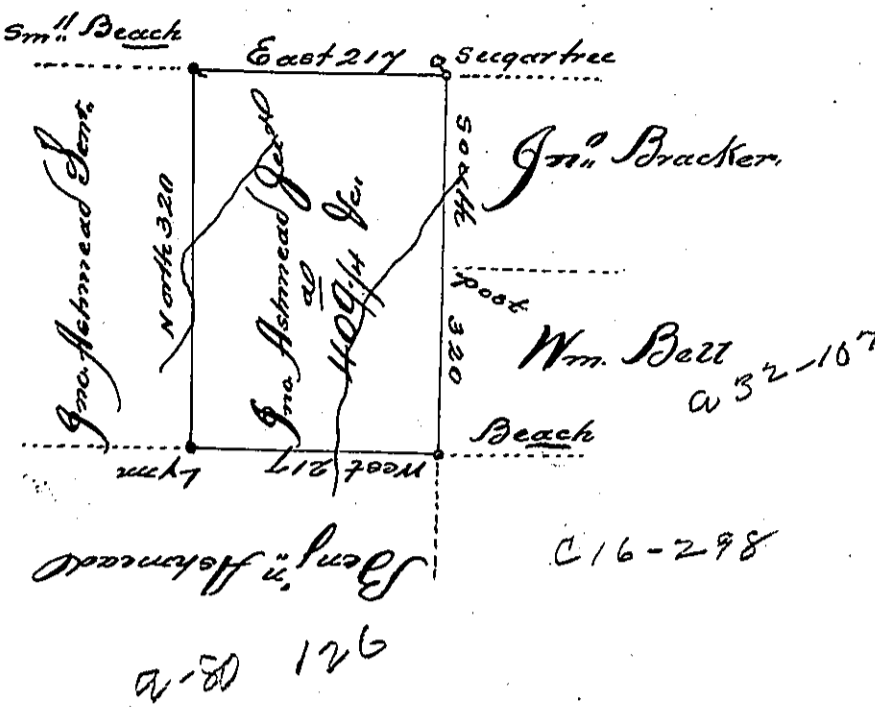 Sm" Beach
East 217
Sugartree
Jno. Ashmead Senr.
North 320
Jno. Ashmead Jun
a
409¼
South 320
Jn" Bracker.
post
Wm. Bell
a 32-107
Beach
Lynn
West 217
Benj"n Ashmead
C16-298
126